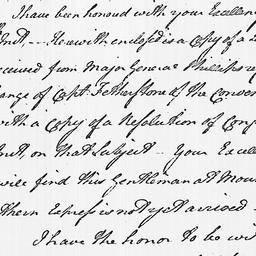 I have been honoured with your Excellen
Inst, -- Herewith enclosed is a Copy of a L
received from Major General Phillips re
ange of Capt. Fetherstone of the Conven
with a Copy of a Resolution of Cong
Inst, on that subject -- your Excell
will find this Gentleman at Mou
thern Express is not yet arrived -
I have the honor to be wi